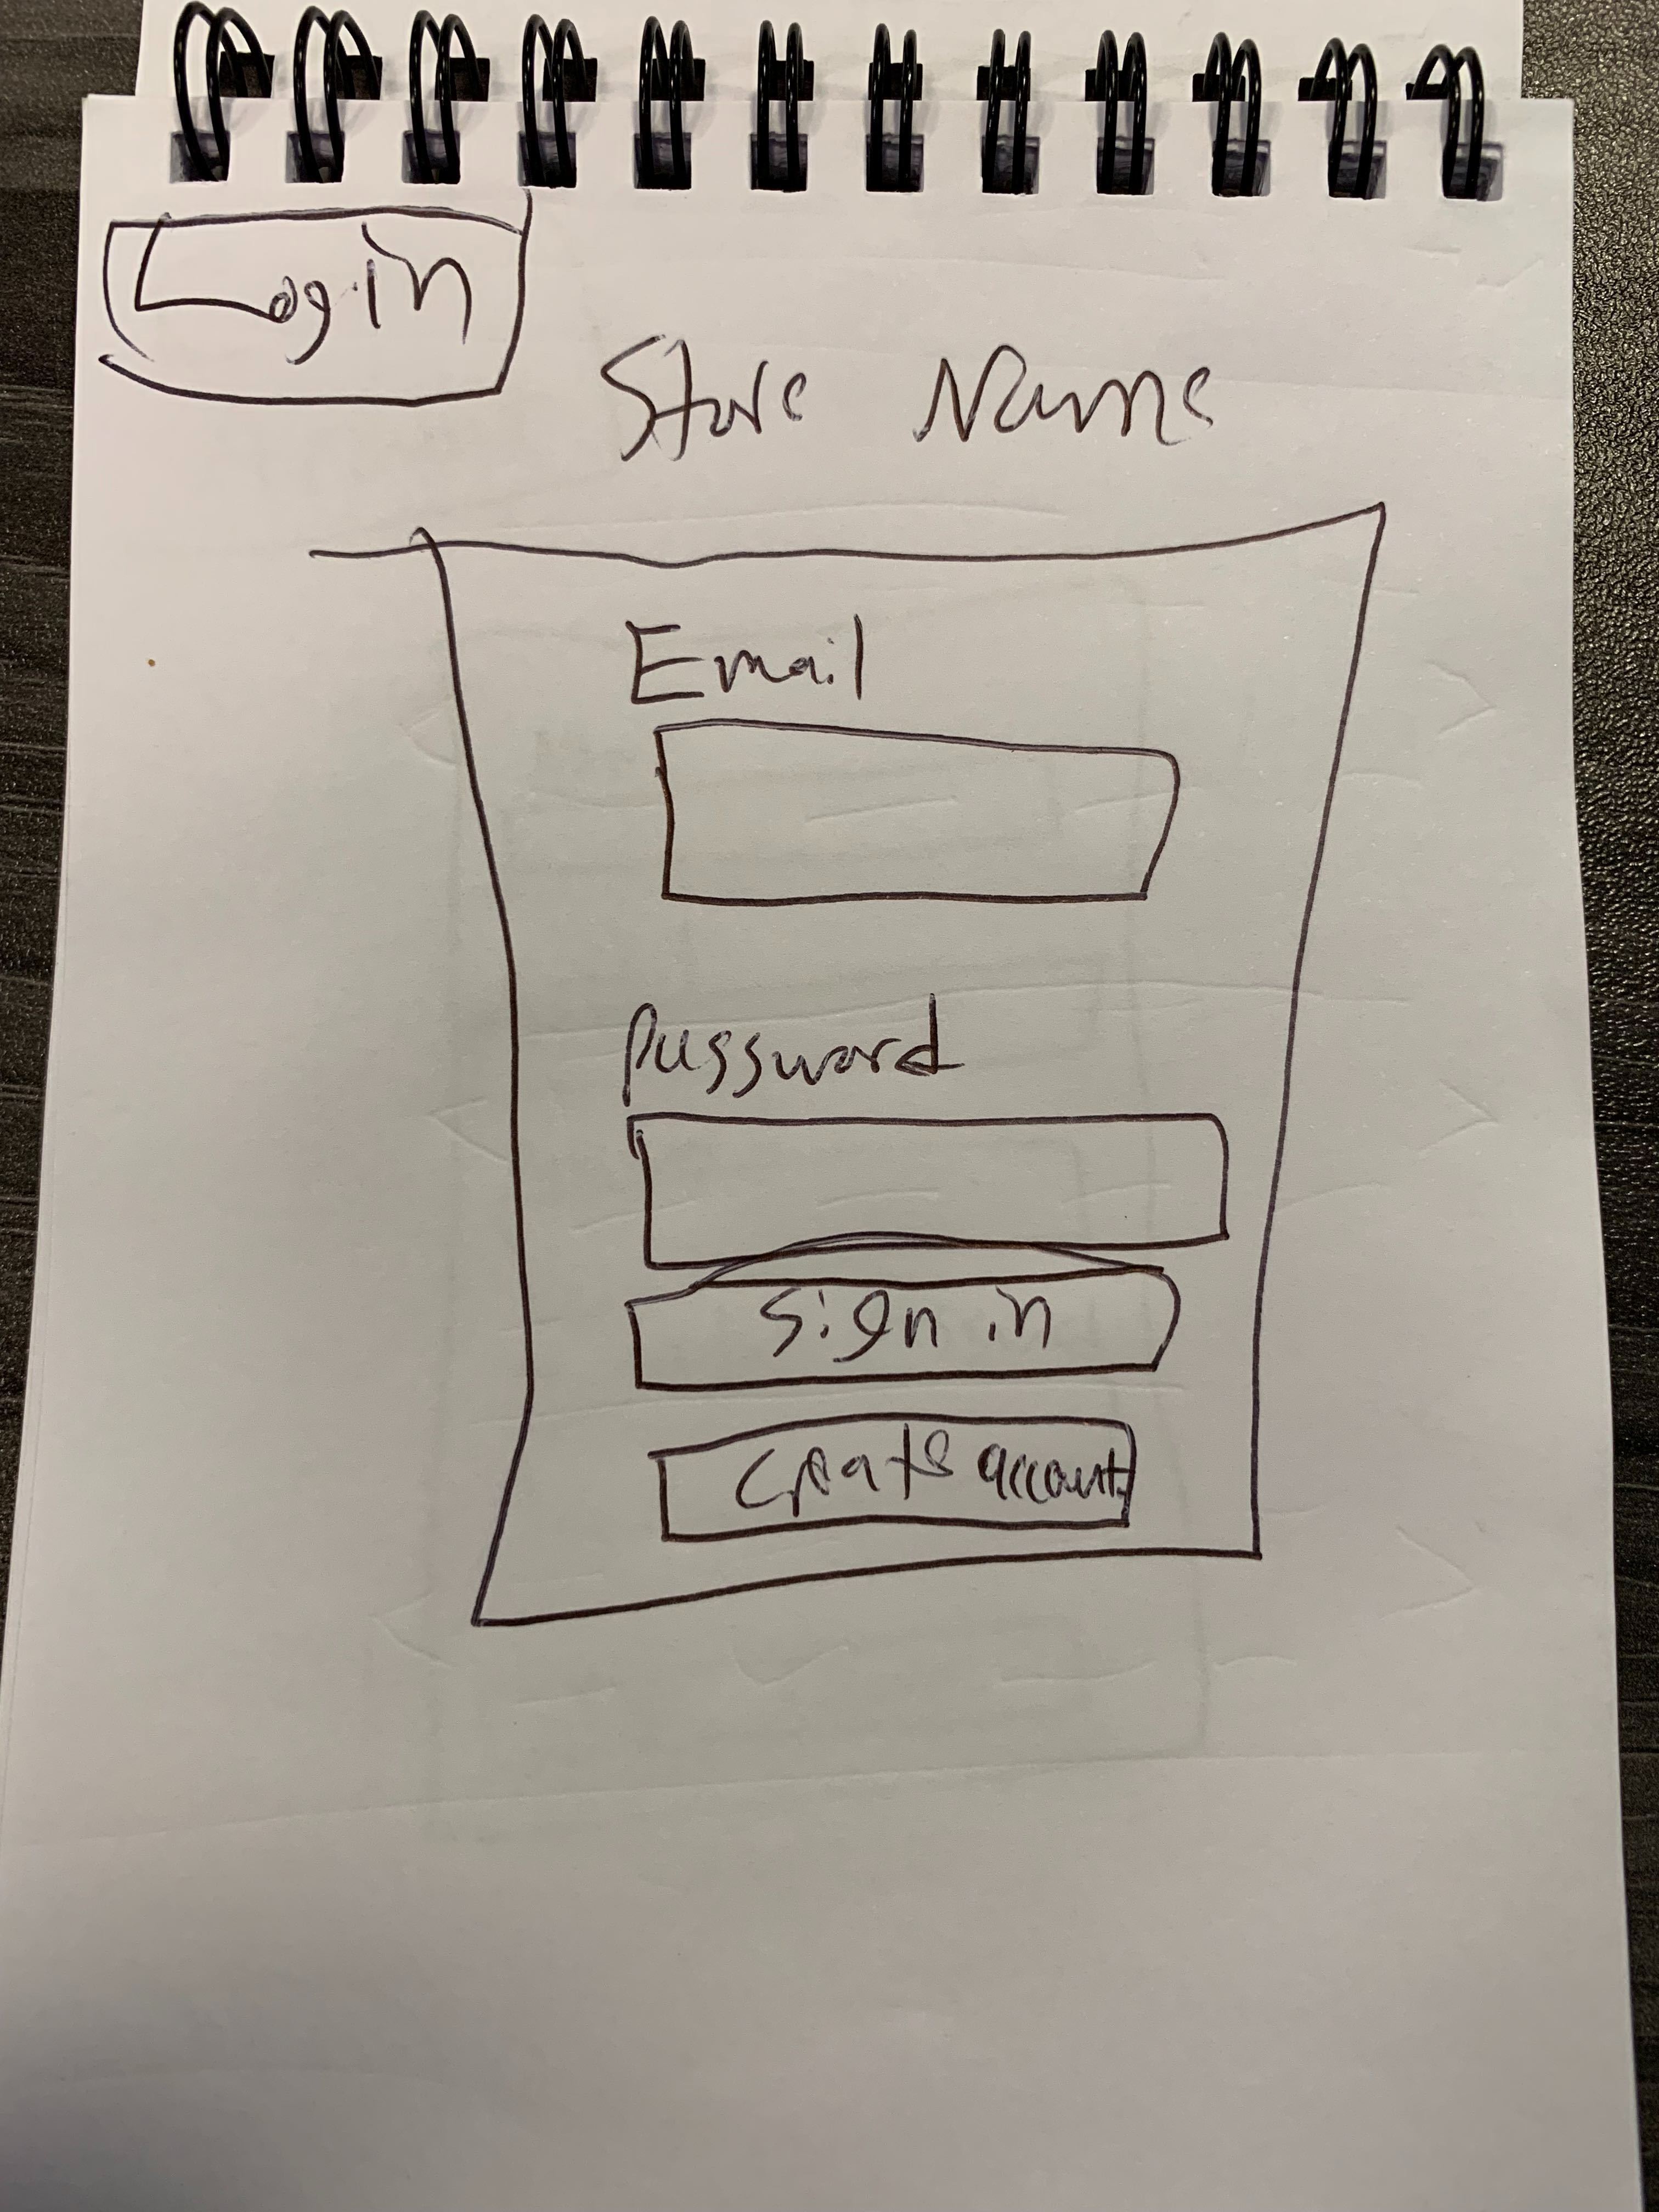 Login
Store Name
Email
Password
Sign in
Create account